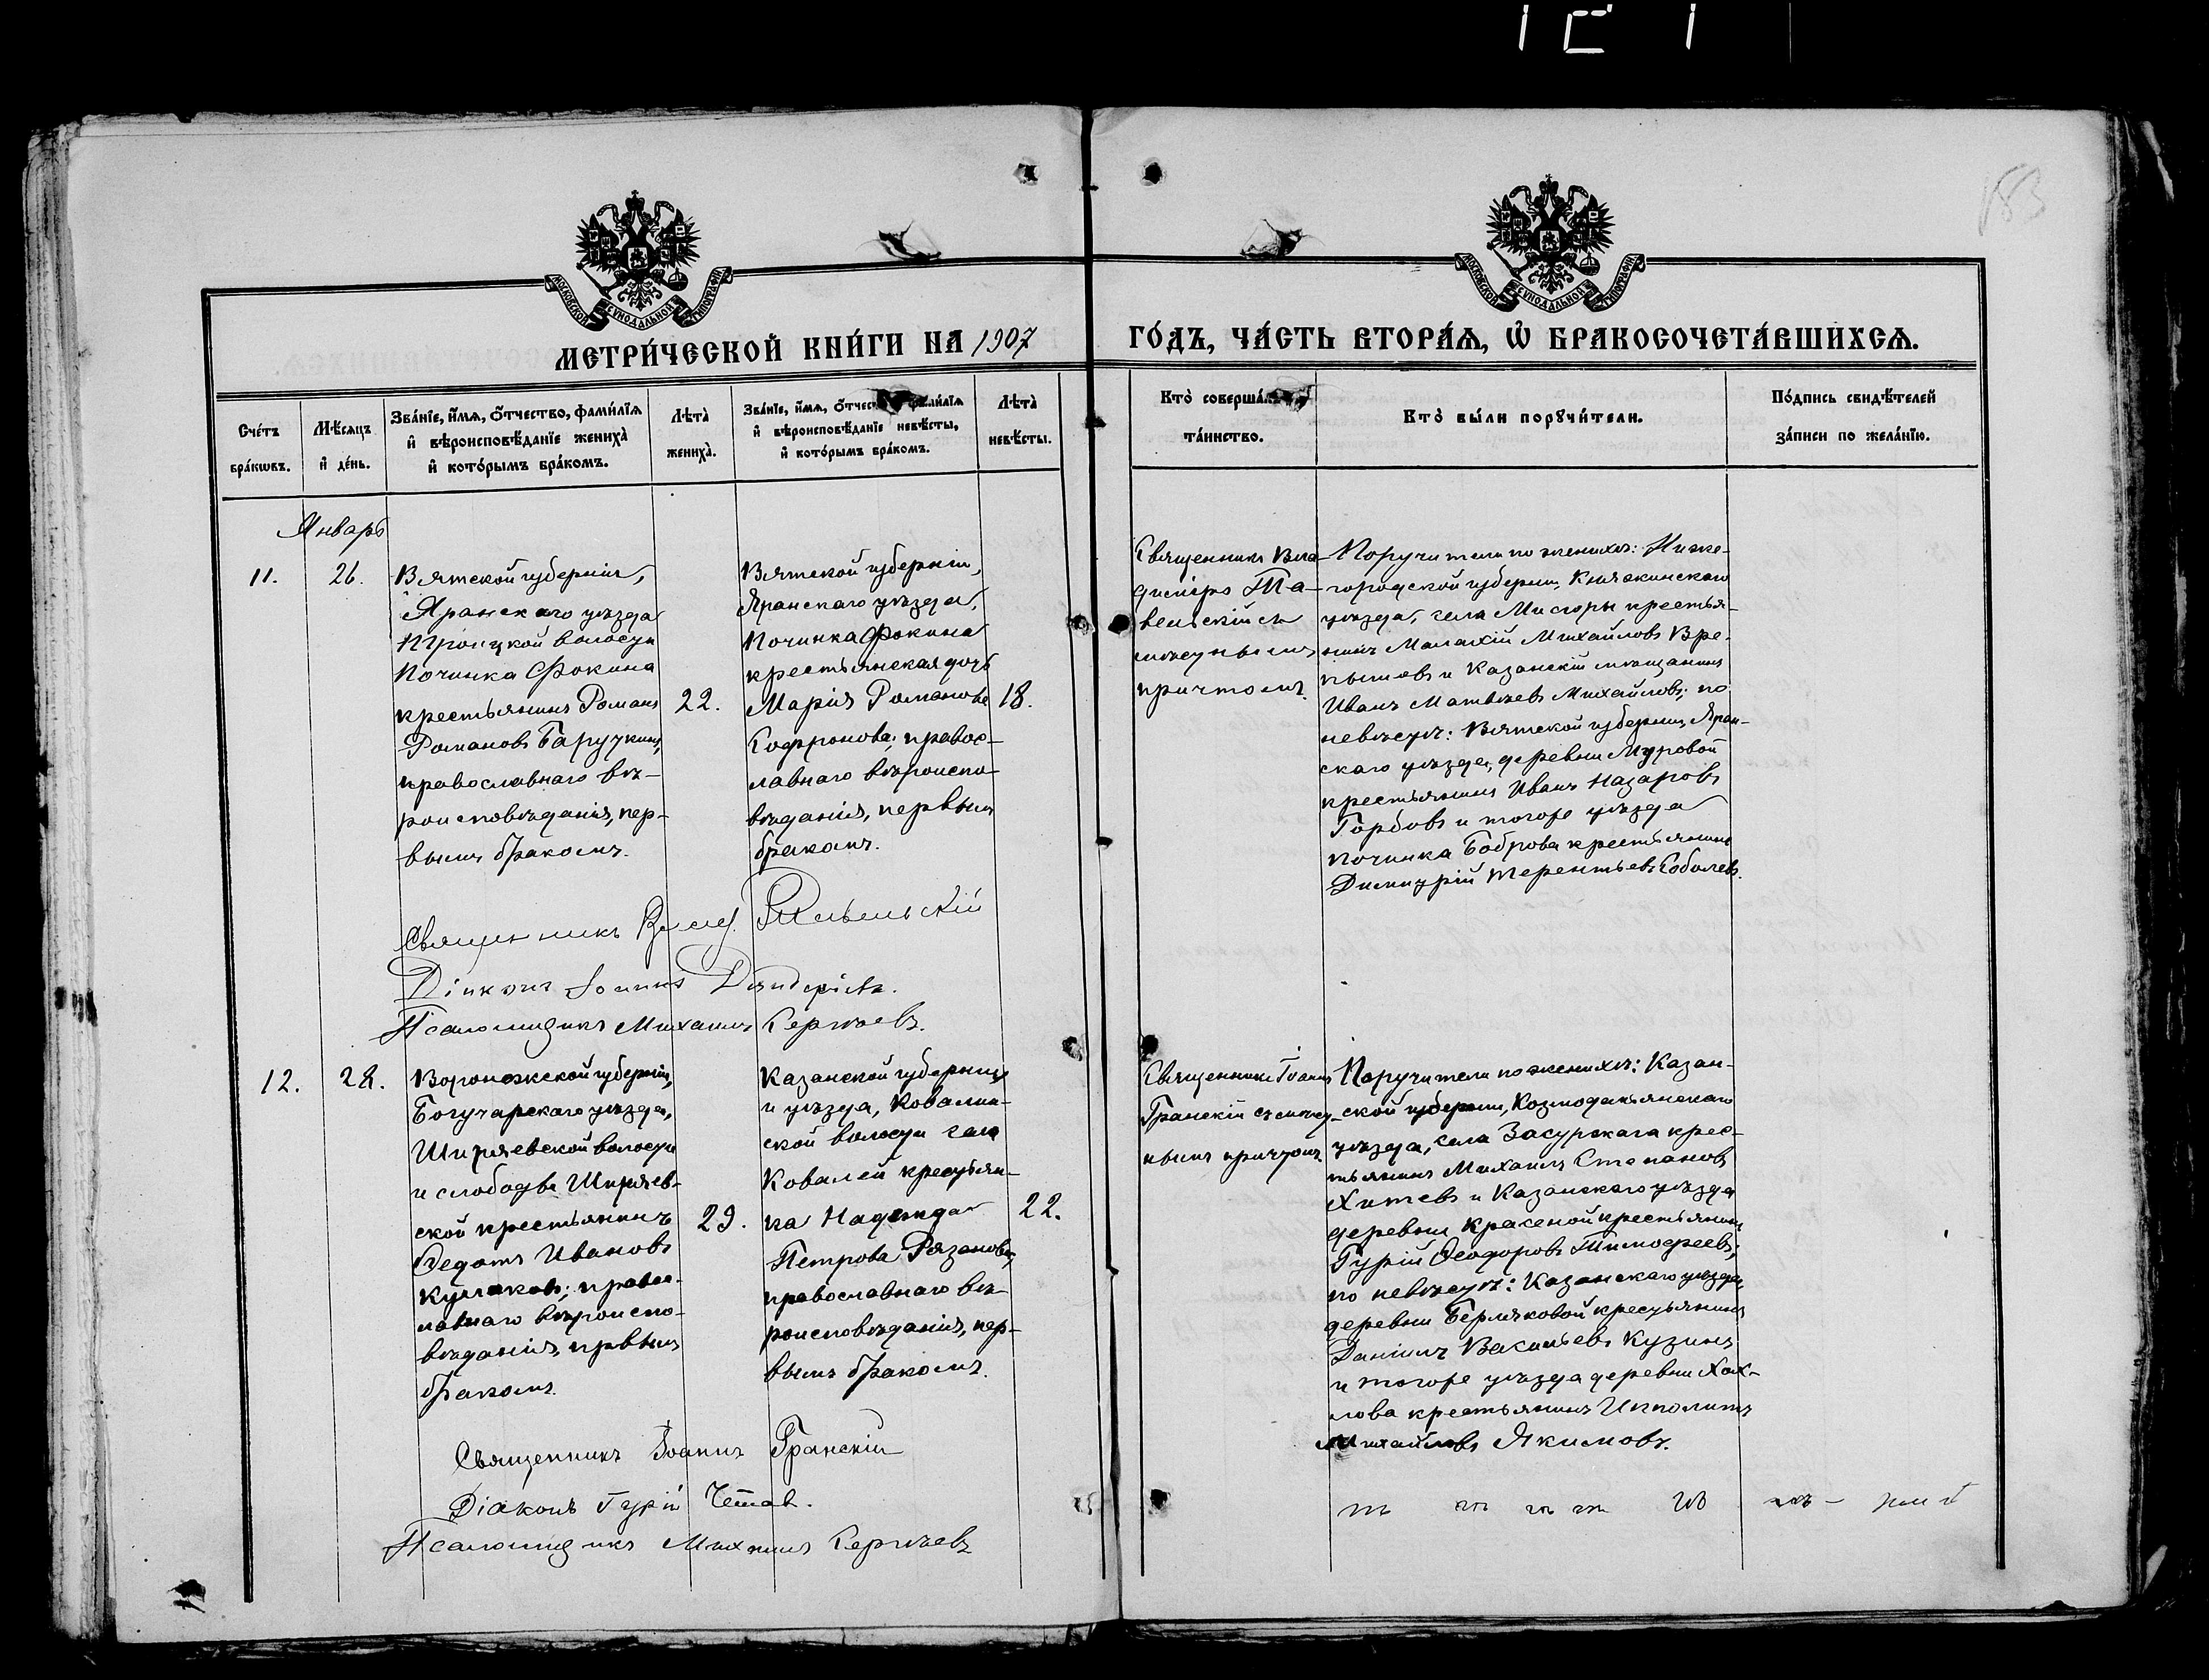 183
МОСКОВСКОЙ СѴНОДАЛЬНОЙ ТИПОГРАФІИ
МОСКОВСКОЙ СѴНОДАЛЬНОЙ ТИПОГРАФІИ
МЕТРИ́ЧЕСКОЙ КНИ́ГИ НА 1907 ГО́ДЪ, ЧА́СТЬ ВТОРА́Ѧ, Ѡ҆ БРАКОСОЧЕТА́ВШИХСѦ.
Сче́тъ
бра́кѡвъ.
Мѣ́сяцъ
и҆ де́нь.
Зва́нїе, и҆́мѧ, ѻ҆́тчество, фами́лїѧ
и҆ вѣроисповѣ́данїе жениха̀
и҆ кото́рымъ бра́комъ.
Лѣта̀
жениха̀.
Зва́нїе, и҆́мѧ, ѻ҆́тчест фами́лїѧ
и҆ вѣроисповѣ́данїе невѣ́сты,
и҆ кото́рымъ бра́комъ.
Лѣта̀
невѣ́сты.
Кто̀ соверша́
та́инство.
Кто̀ бы́ли порꙋчи́тели.
По́дпись свидѣ́телей
за́писи по жела́нїю.
Январь
11.
26.
Вятской губерніи,
Яранскаго уѣзда
Троицкой волости
Починка Фокина
крестьянинъ Романъ
Романовъ
православнаго вѣ-
роисповѣданія, пер-
вымъ бракомъ.
22.
Вятской губерніи,
Яранскаго уѣзда,
Починка Фокина
крестьянская дочь
Марія Романова
Софронова; правос-
лавнаго вѣроиспо-
вѣданія, первымъ
бракомъ.
18.
Священникъ Вла-
диміръ Та-
вельскій съ
мѣстнымъ
причтомъ.
Поручители по женихѣ: Ниже-
городской губерніи, Княгининскаго
уѣзда, села крестья-
нинъ Малахій Михайловъ Вре-
и Казанскій мѣщанинъ
Иванъ Матвѣевъ Михайловъ; по
невѣстѣ: Вятской губерніи, Яран-
скаго уѣзда, деревни Муровой
крестьянинъ Иванъ Назаровъ
Горбовъ и тогоже уѣзда
починка Боброва крестьянинъ
Димитрій Терентьевъ Соболевъ.
Священникъ Влад. Тавельскій
Діаконъ Іоаннъ
Псаломщикъ Михаилъ Сергѣевъ.
12.
28.
Воронежской губерніи,
Богучарскаго уѣзда,
Ширяевской волости
и слободы Ширяев-
ской крестьянинъ
Федотъ Ивановъ
Кулаковъ; правос-
лавнаго вѣроиспо-
вѣданія, првымъ
бракомъ.
29.
Казанской губерніи
и уѣзда, Ковалин-
ской волости села
Ковалей крестьян-
ка Надежда
Петрова Рязанова,
православнаго вѣ-
роисповѣданія, пер-
вымъ бракомъ.
22.
Священникъ Іоаннъ
Гранскій съ мѣст-
нымъ причтомъ.
Поручители по женихѣ: Казан-
ской губерніи, Козмодемьянскаго
уѣзда, села Засурскаго крес-
тьянинъ Михаилъ Степановъ
Хитевъ и Казанскаго уѣзда
деревни Красной крестьянинъ
Гурій Ѳеодоровъ Тимофеевъ;
по невѣстѣ: Казанскаго уѣзда,
деревни крестьянинъ
Даніилъ Васильевъ Кузинъ
и тогоже уѣзда деревни Хох-
лова крестьянинъ Ипполитъ
Михайловъ Якимовъ.
Священникъ Іоаннъ Гранскій
Діаконъ Гурій
Псаломщикъ Михаилъ Сергѣевъ